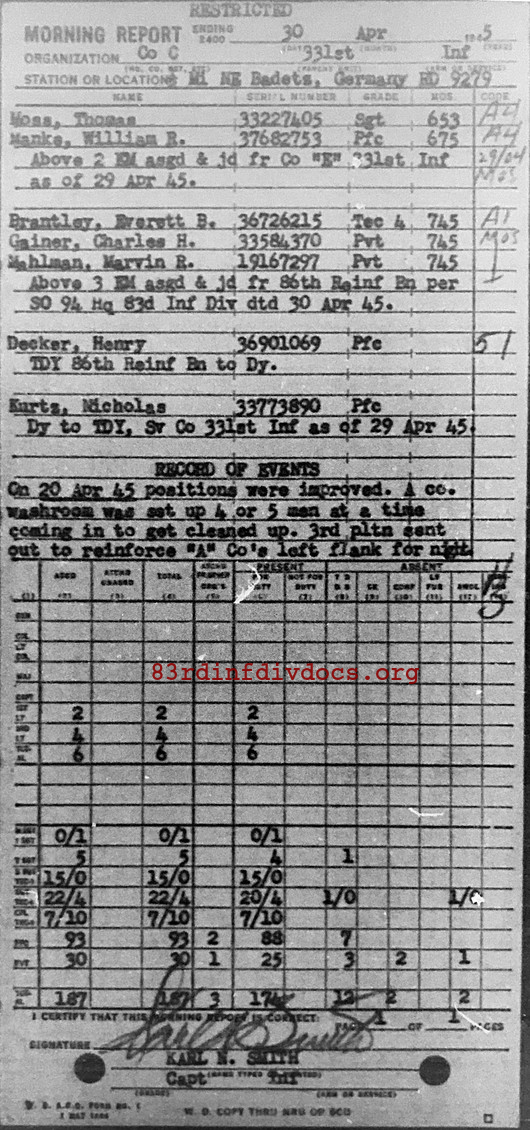 RESTRICTED
MORNING REPORT ENDING 2400 30 Apr 1945
ORGANIZATION Co C 331st Inf
STATION OR LOCATION ¼ Mi NE Badetz, Germany RD 9279
NAME SERIAL NUMBER GRADE MOS CODE
Moss, Thomas 33227405 Sgt 653 A4
Manke, William R. 37682753 Pfc 675 A4
Above 2 EM asgd & jd fr Co "E" 331st Inf 29/04
as of 29 Apr 45. MOS
Brantley, Everett B. 36726215 Tec 4 745 A1
Gainer, Charles H. 33584370 Pvt 745 MOS
Mahlman, Marvin R. 19167297 Pvt 745
Above 3 EM asgd & jd fr 86th Reinf Bn per
SO 94 Hq 83d Inf Div dtd 30 Apr 45.
Decker, Henry 36901069 Pfc 51
TDY 86th Reinf Bn to Dy.
Kurtz, Nicholas 33773890 Pfc
Dy to TDY, Sv Co 331st Inf as of 29 Apr 45.
RECORD OF EVENTS
On 20 Apr 45 positions were improved. A co.
washroom was set up 4 or 5 men at a time
coming in to get cleaned up. 3rd pltn sent
out to reinforce "A" Co's left flank for night
PRESENT ABSENT
ASGD TOTAL DUTY NOT FOR DUTY SK CONF AWOL
83rdinfdivdocs.org
2 2 2
4 4 4
6 6 6
0/1 0/1 0/1
5 5 4 1
15/0 15/0 15/0
22/4 22/4 20/4 1/0 1/0
7/10 7/10 7/10
93 93 2 88 7
PVT 30 30 1 25 3 2 1
187 187 3 174 12 2 2
I CERTIFY THAT THIS MORNING REPORT IS CORRECT: PAGE 1 OF 1 PAGES
SIGNATURE Karl N Smith
KARL N. SMITH
Capt Inf
(GRADE) (ARM OR SERVICE)
W. D. A.G.O. FORM NO. 1
W. D. COPY THRU MRU OR SCU